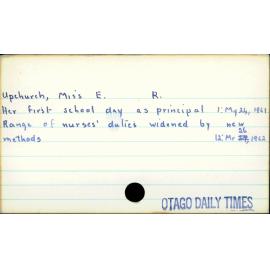 Upchurch, Miss E. R.
Her first school day as principal 1: My 24, 1961
Range of nurses' duties widened by new
methods 12: Mr 26, 1962
OTAGO DAILY TIMES